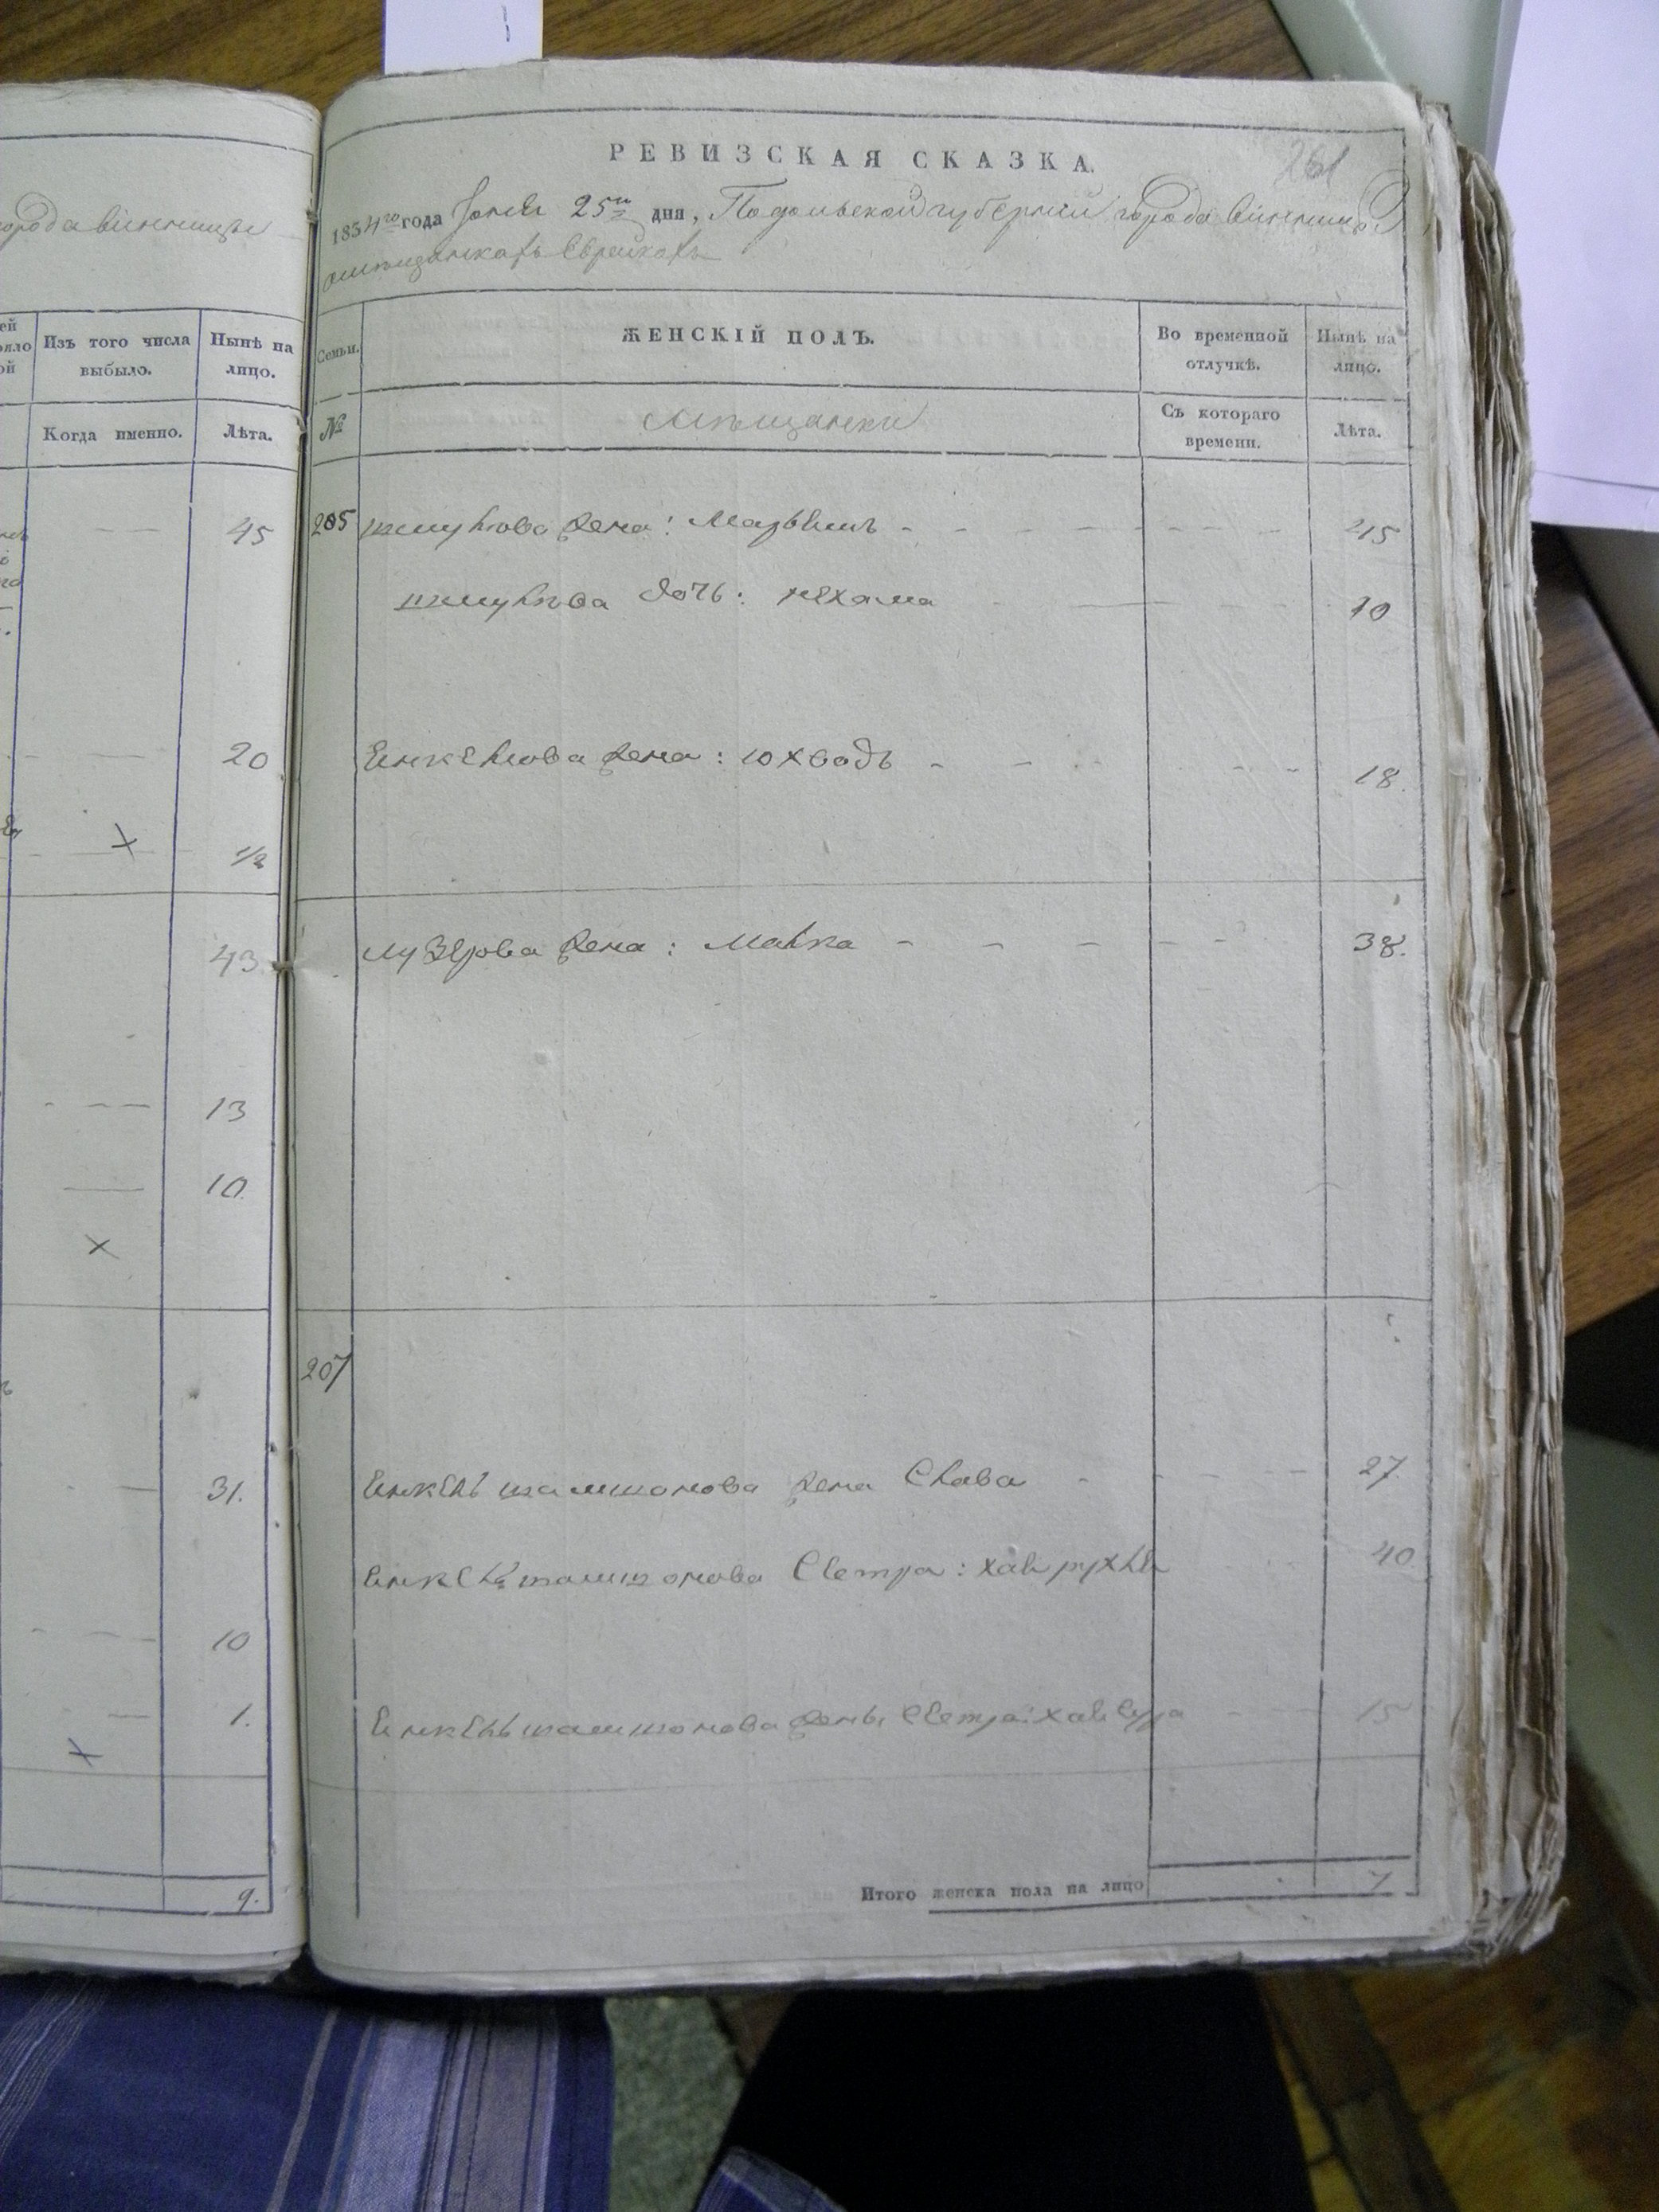 города Винницы
Изъ того числа выбыло.
Нынѣ на лицо.
Когда именно.
Лѣта.
45
20
1/2
43
13
10
31.
10
1.
9.
261
РЕВИЗСКАЯ СКАЗКА.
1834го года 25го дня, Подольской губернии города Винницы
мѣщанкахъ Еврейкахъ
Семьи.
ЖЕНСКІЙ ПОЛЪ.
Во временной отлучкѣ.
Нынѣ на лицо.
№
Мѣщанки
Съ котораго времени.
Лѣта.
205 шмулюва жена: 45
шмулюва дочь: нехама 10
Енкелюва жена: юхводъ 18.
лузерова жена: Малка 38.
207
Енкель шамшонова жена Слава 27.
Енкель шамшонова Сестра: 40
Енкель шамшонова жены Сестра: 15
Итого женска пола на лицо 7